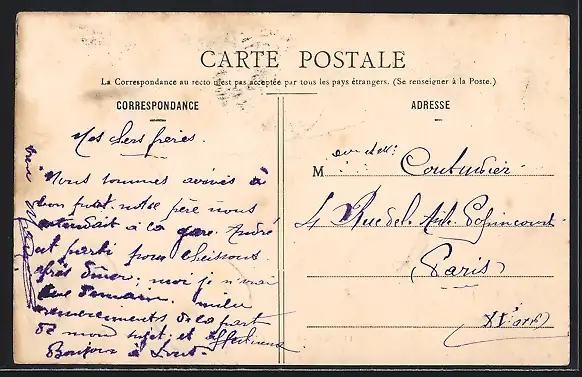 CARTE POSTALE
La Correspondance au recto n'est pas acceptée par tous les pays étrangers. (Se renseigner à la Poste.)
CORRESPONDANCE
Mes chers frères.
Nous sommes arrivés à
bon port. notre père nous
attendait à la gare. André
est parti pour
après dîner; moi je n'irai
que demain.
remerciements de la part
de mon sujet; et
Bonjour à tout.
ADRESSE
M
4 Rue de l'Asile Popincourt
Paris
XIe arr